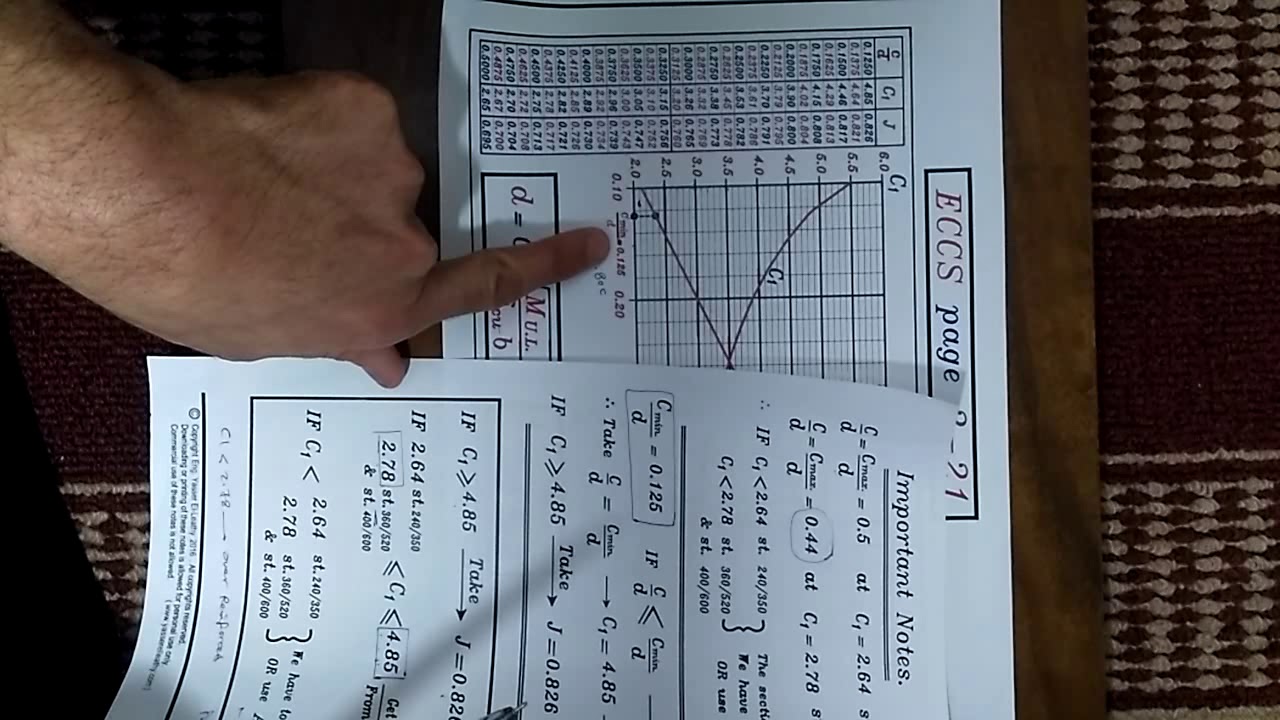 ECCS page 2-21
c/d C₁ J
0.1250 4.85 0.826
0.1375 4.64 0.821
0.1500 4.46 0.817
0.1625 4.29 0.813
0.1750 4.15 0.808
0.1875 4.02 0.804
0.2000 3.90 0.800
0.2125 3.79 0.795
0.2250 3.70 0.791
0.2375 3.61 0.786
0.2500 3.53 0.782
0.2625 3.45 0.778
0.2750 3.38 0.773
0.3000 3.26 0.765
0.3125 3.20 0.760
0.3250 3.15 0.756
0.3375 3.10 0.752
0.3500 3.05 0.747
0.3625 3.00 0.743
0.3750 2.96 0.739
0.3875 2.92 0.734
0.4000 2.89 0.730
0.4250 2.82 0.721
0.4375 2.78 0.717
0.4500 2.75 0.713
0.4625 2.72 0.708
0.4750 2.70 0.704
0.4875 2.67 0.700
0.5000 2.65 0.695
C₁
6.0
5.5
5.0
4.5
4.0
3.5
3.0
2.5
2.0
C₁
0.10 Cmin/d = 0.125 0.20
d = C
M U.L.
b
Important Notes.
C/d = Cmax/d = 0.5 at C₁ = 2.64
C/d = Cmax/d = 0.44 at C₁ = 2.78
∴ IF C₁ < 2.64 st. 240/350 } The secti
C₁ < 2.78 st. 360/520 We have
& st. 400/600 OR use
Cmin/d = 0.125 IF C/d ≤ Cmin/d
∴ Take C/d = Cmin/d → C₁ = 4.85
IF C₁ ≥ 4.85 Take → J = 0.826
IF C₁ ≥ 4.85 Take → J = 0.826
IF 2.64 st. 240/350 ≤ C₁ ≤ 4.85 Get
2.78 st. 360/520 From
& st. 400/600
IF C₁ < 2.64 st. 240/350 } We have to
2.78 st. 360/520 OR use
& st. 400/600
C1 < 2.78 → over Reinforced
© Copyright Eng. Yasser El-Leathy 2016. All copyrights reserved.
Downloading or printing of these notes is allowed for personal use only.
Commercial use of these notes is not allowed. (www.yasserelleathy.com)